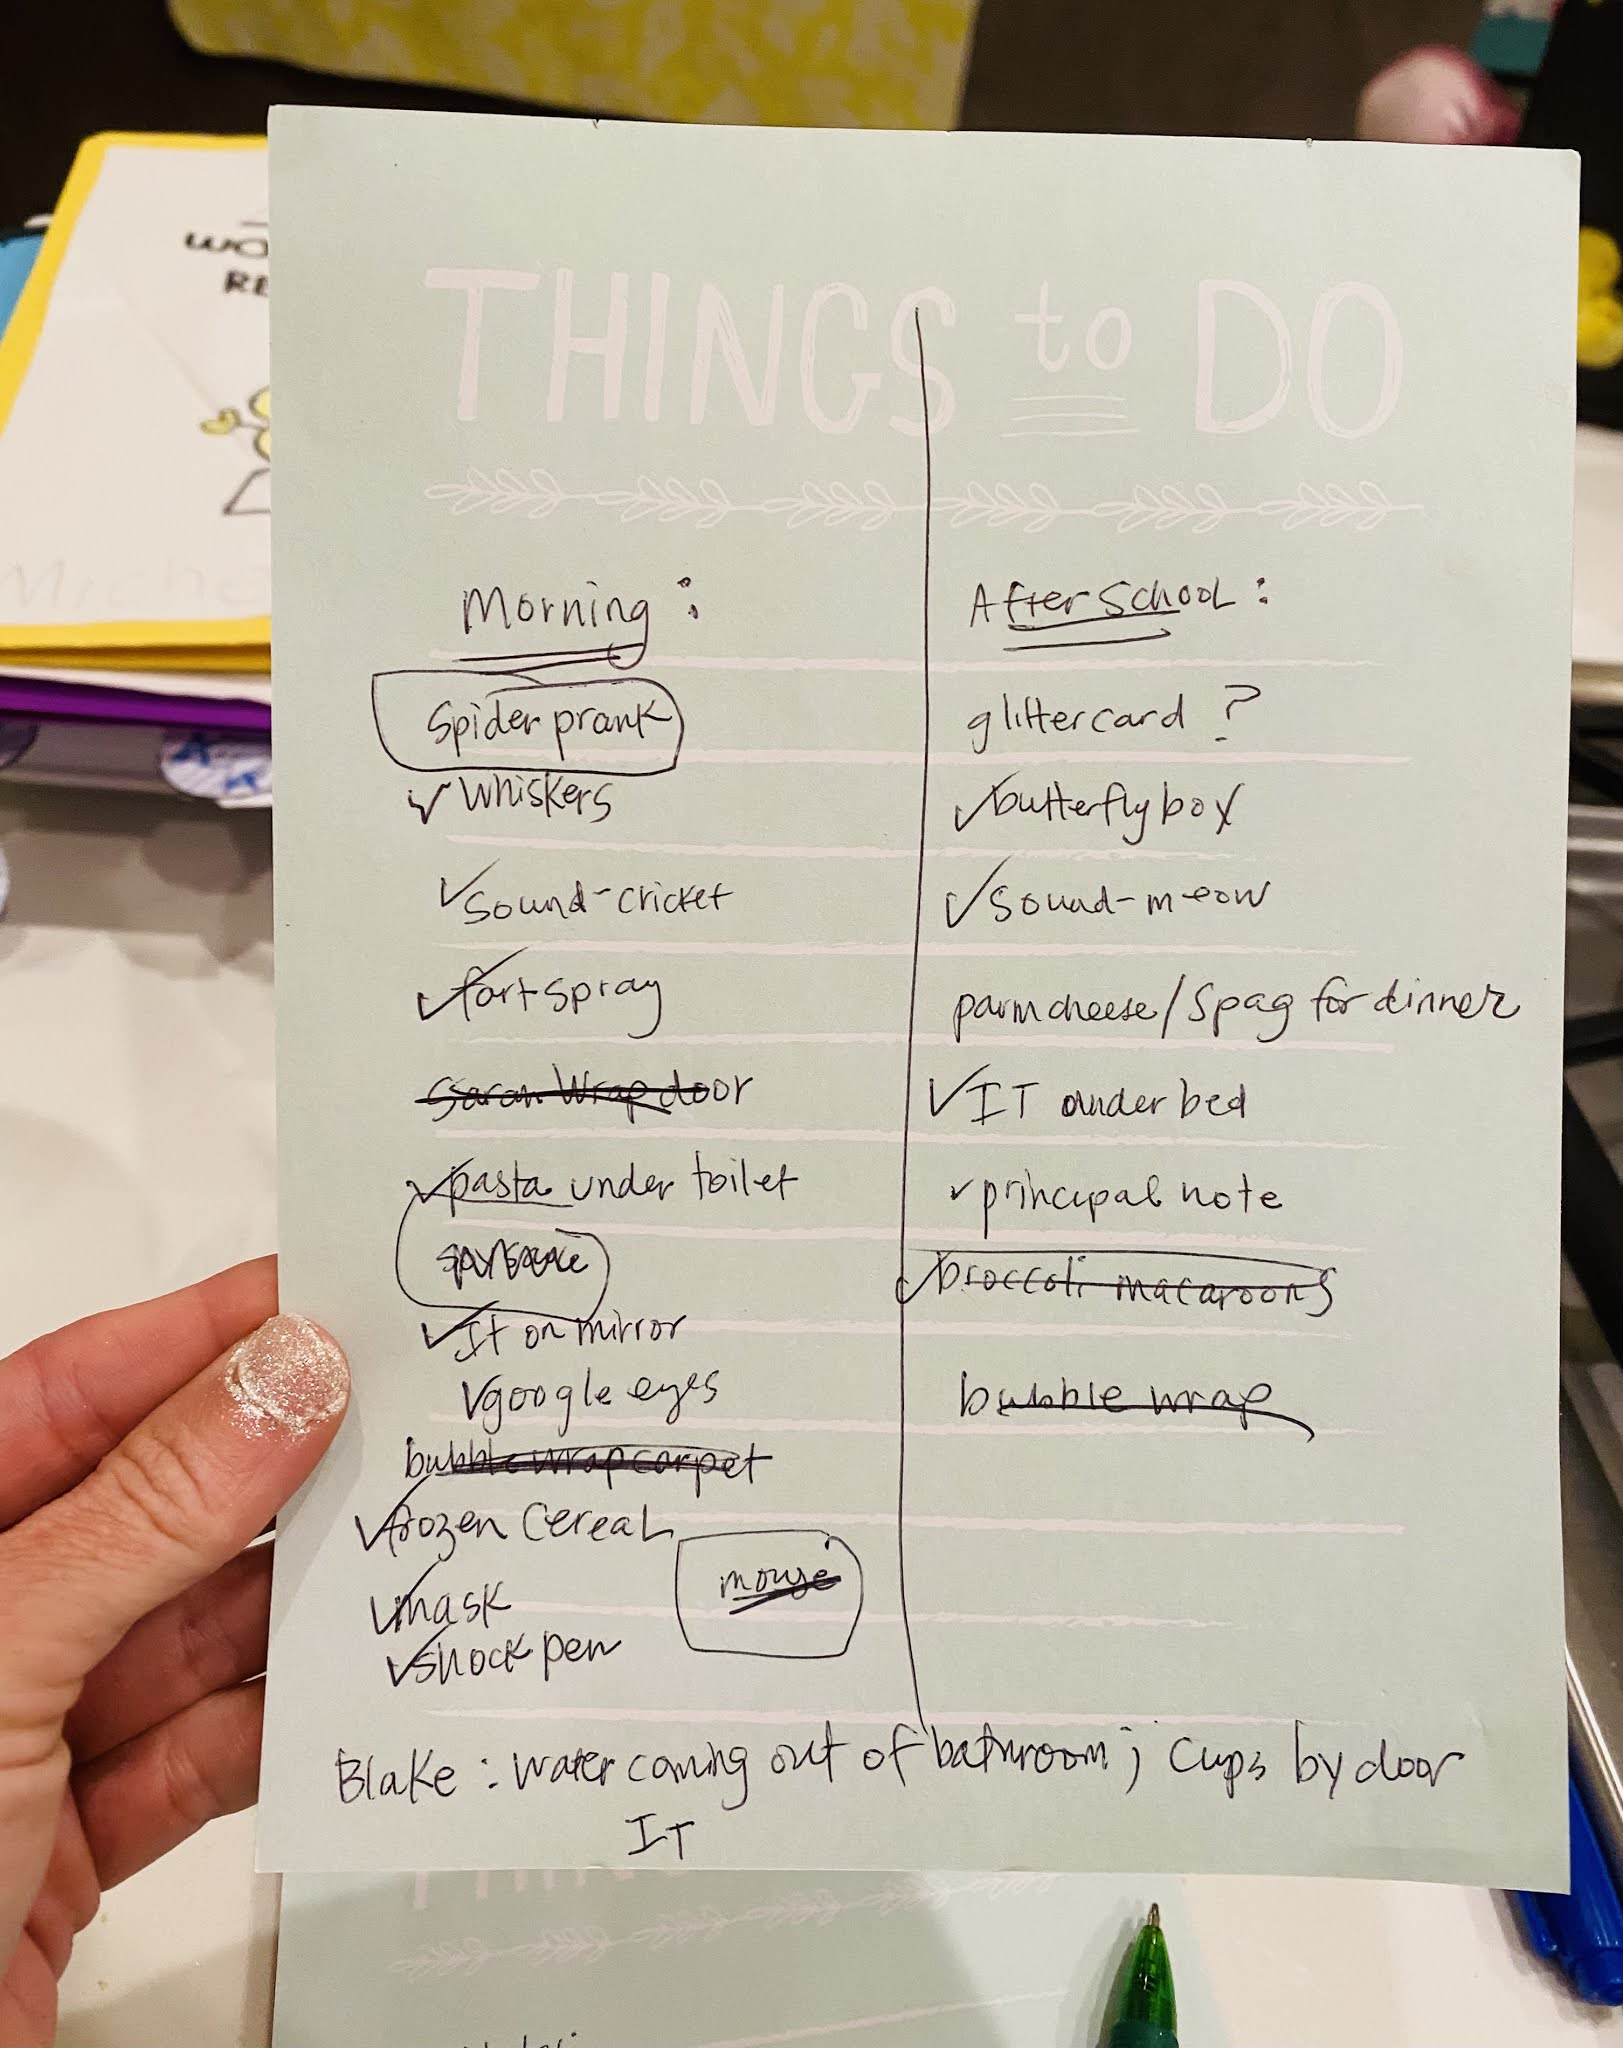 WO
RE
Miche
THINGS to DO
Morning:
Spider prank
whiskers
sound-cricket
fart spray
Saran Wrap door
pasta under toilet
It on mirror
google eyes
bubble wrap carpet
frozen Cereal
mouse
mask
shock pen
After School:
glitter card ?
butterfly box
sound-meow
parm cheese/Spag for dinner
IT under bed
principal note
broccoli macaroons
bubble wrap
Blake: water coming out of bathroom; Cups by door
IT